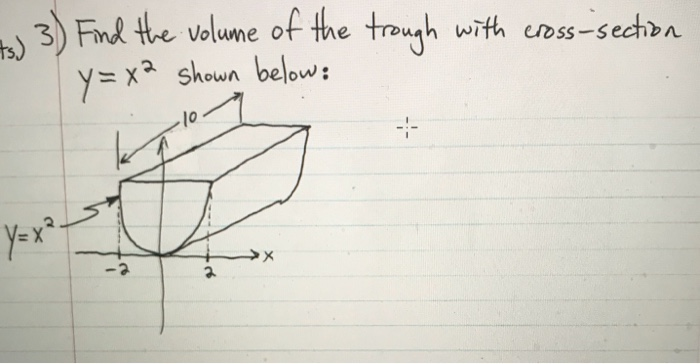 ts.) 3) Find the volume of the trough with cross-section
y = x² shown below:
10
y = x²
-2
2
x